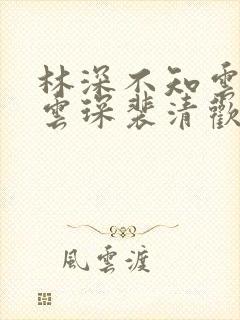 林深不知雲
雲琛裴清歡
風雲渡